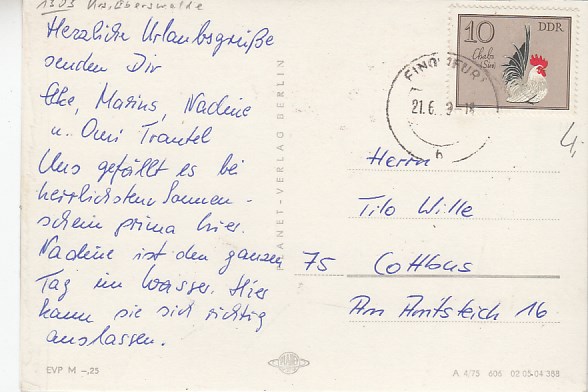 1303 Krs. Eberswalde
Herzliche Urlaubsgrüße
senden Dir
Elke, Marius, Nadine
u. Omi Trautel
Uns gefällt es bei
herrlichstem Sonnen-
schein prima hier.
Nadine ist den ganzen
Tag im Wasser. Hier
kann sie sich richtig
auslassen.
EVP M -,25
PLANET-VERLAG BERLIN
10 DDR
Chabo
FINOWFURT
21.6. 9-18
h
4,
Herrn
Tilo Wille
75 Cottbus
Am Amtsteich 16
PLANET
A 4/75 606 02 05 04 388